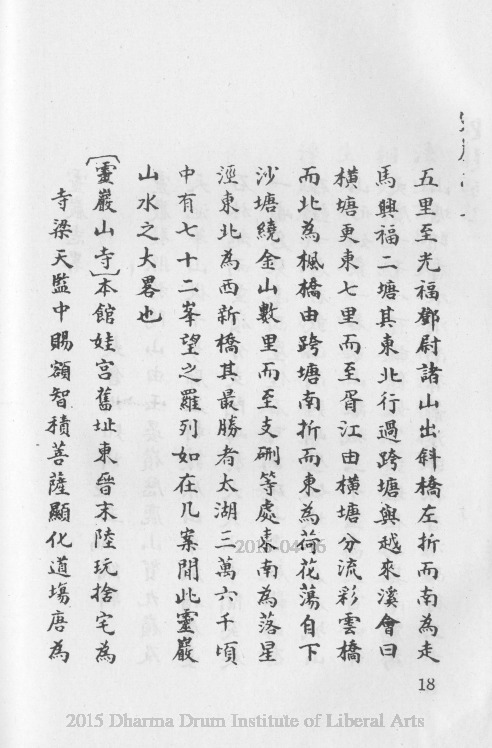 五里至光福鄧尉諸山出斜橋左折而南為走
馬興福二塘其東北行過跨塘與越來溪會曰
橫塘更東七里而至胥江由橫塘分流彩雲橋
而北為楓橋由跨塘南折而東為荷花蕩自下
沙塘繞金山數里而至支硎等處東南為落星
涇東北為西新橋其最勝者太湖三萬六千頃
中有七十二峯望之羅列如在几案間此靈巖
山水之大畧也
〔靈巖山寺〕本館娃宮舊址東晉末陸玩捨宅為
寺梁天監中賜額智積菩薩顯化道塲唐為
18
2015 Dharma Drum Institute of Liberal Arts